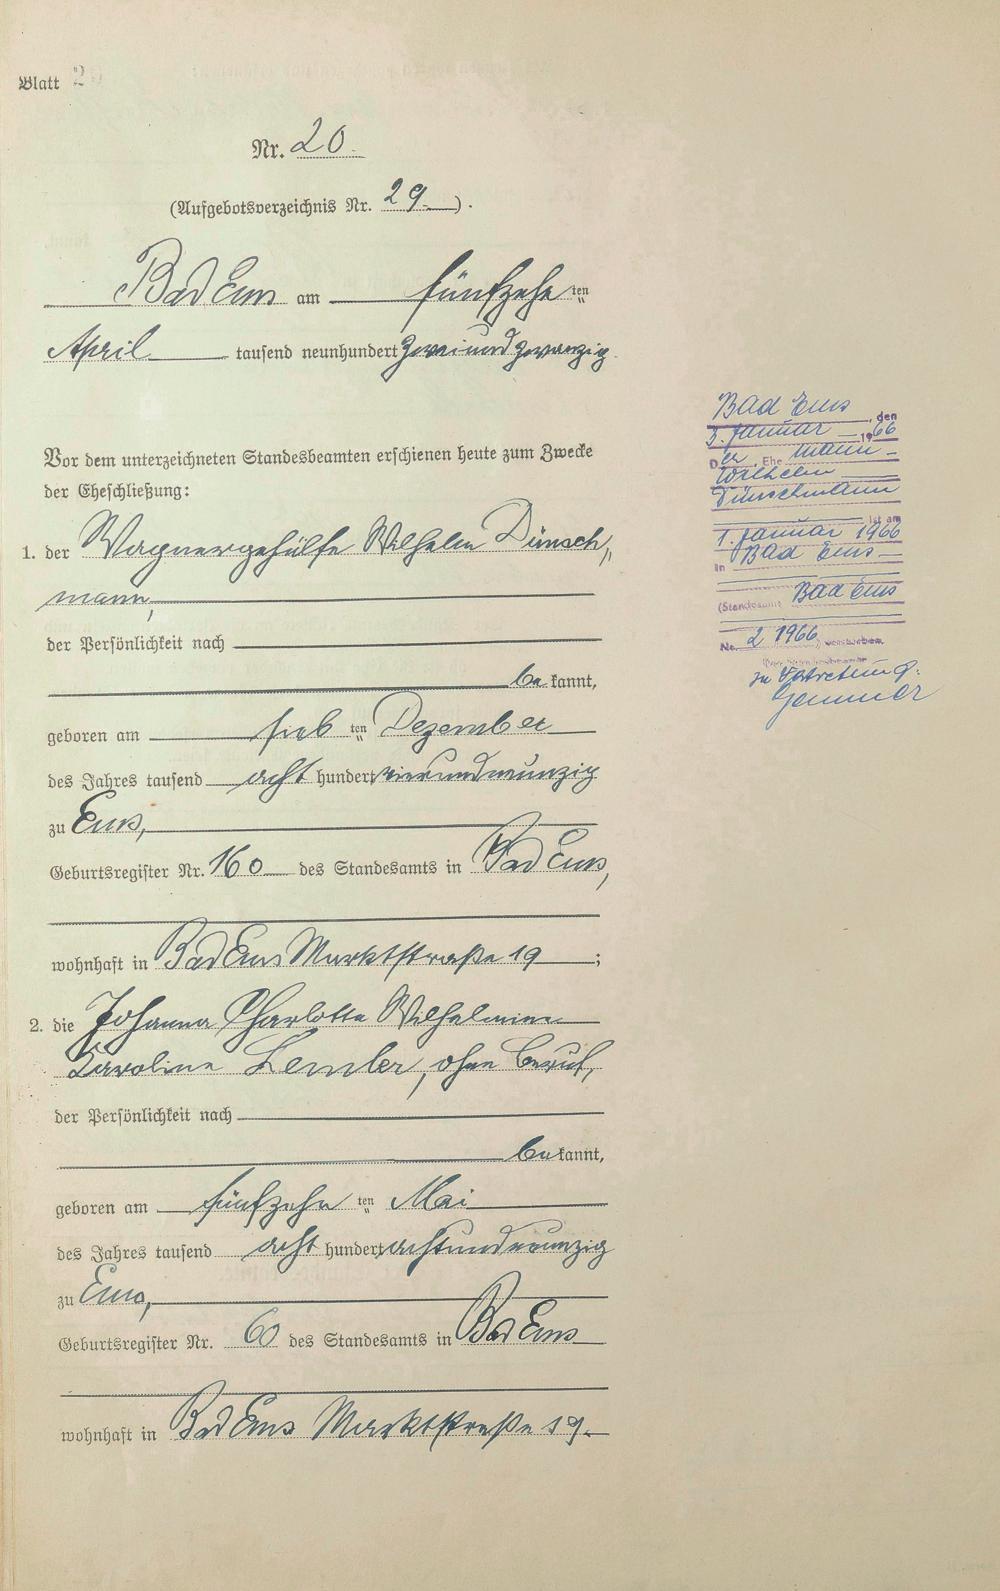 Blatt 20
Nr. 20.
(Aufgebotsverzeichnis Nr. 29.).
Bad Ems am fünfzehnten
April tausend neunhundert zweiundzwanzig.
Vor dem unterzeichneten Standesbeamten erschienen heute zum Zwecke
der Eheschließung:
1. der Wagnergehülfe Wilhelm Dünsch,
mann,
der Persönlichkeit nach
bekannt,
geboren am siebten Dezember
des Jahres tausend acht hundert vierundneunzig
zu Ems,
Geburtsregister Nr. 160 des Standesamts in Bad Ems,
wohnhaft in Bad Ems Marktstraße 19;
2. die Johanna Charlotte Wilhelmine
Karoline Lemler, ohne Beruf,
der Persönlichkeit nach
bekannt,
geboren am fünfzehnten Mai
des Jahres tausend acht hundert achtundneunzig
zu Ems,
Geburtsregister Nr. 60 des Standesamts in Bad Ems
wohnhaft in Bad Ems Marktstraße 19.
Bad Ems, den
3. Januar 1966
Der Ehemann
Wilhelm
Dünschmann
ist am
1. Januar 1966
in Bad Ems
(Standesamt Bad Ems
Nr. 2 1966) verstorben.
In Vertretung: